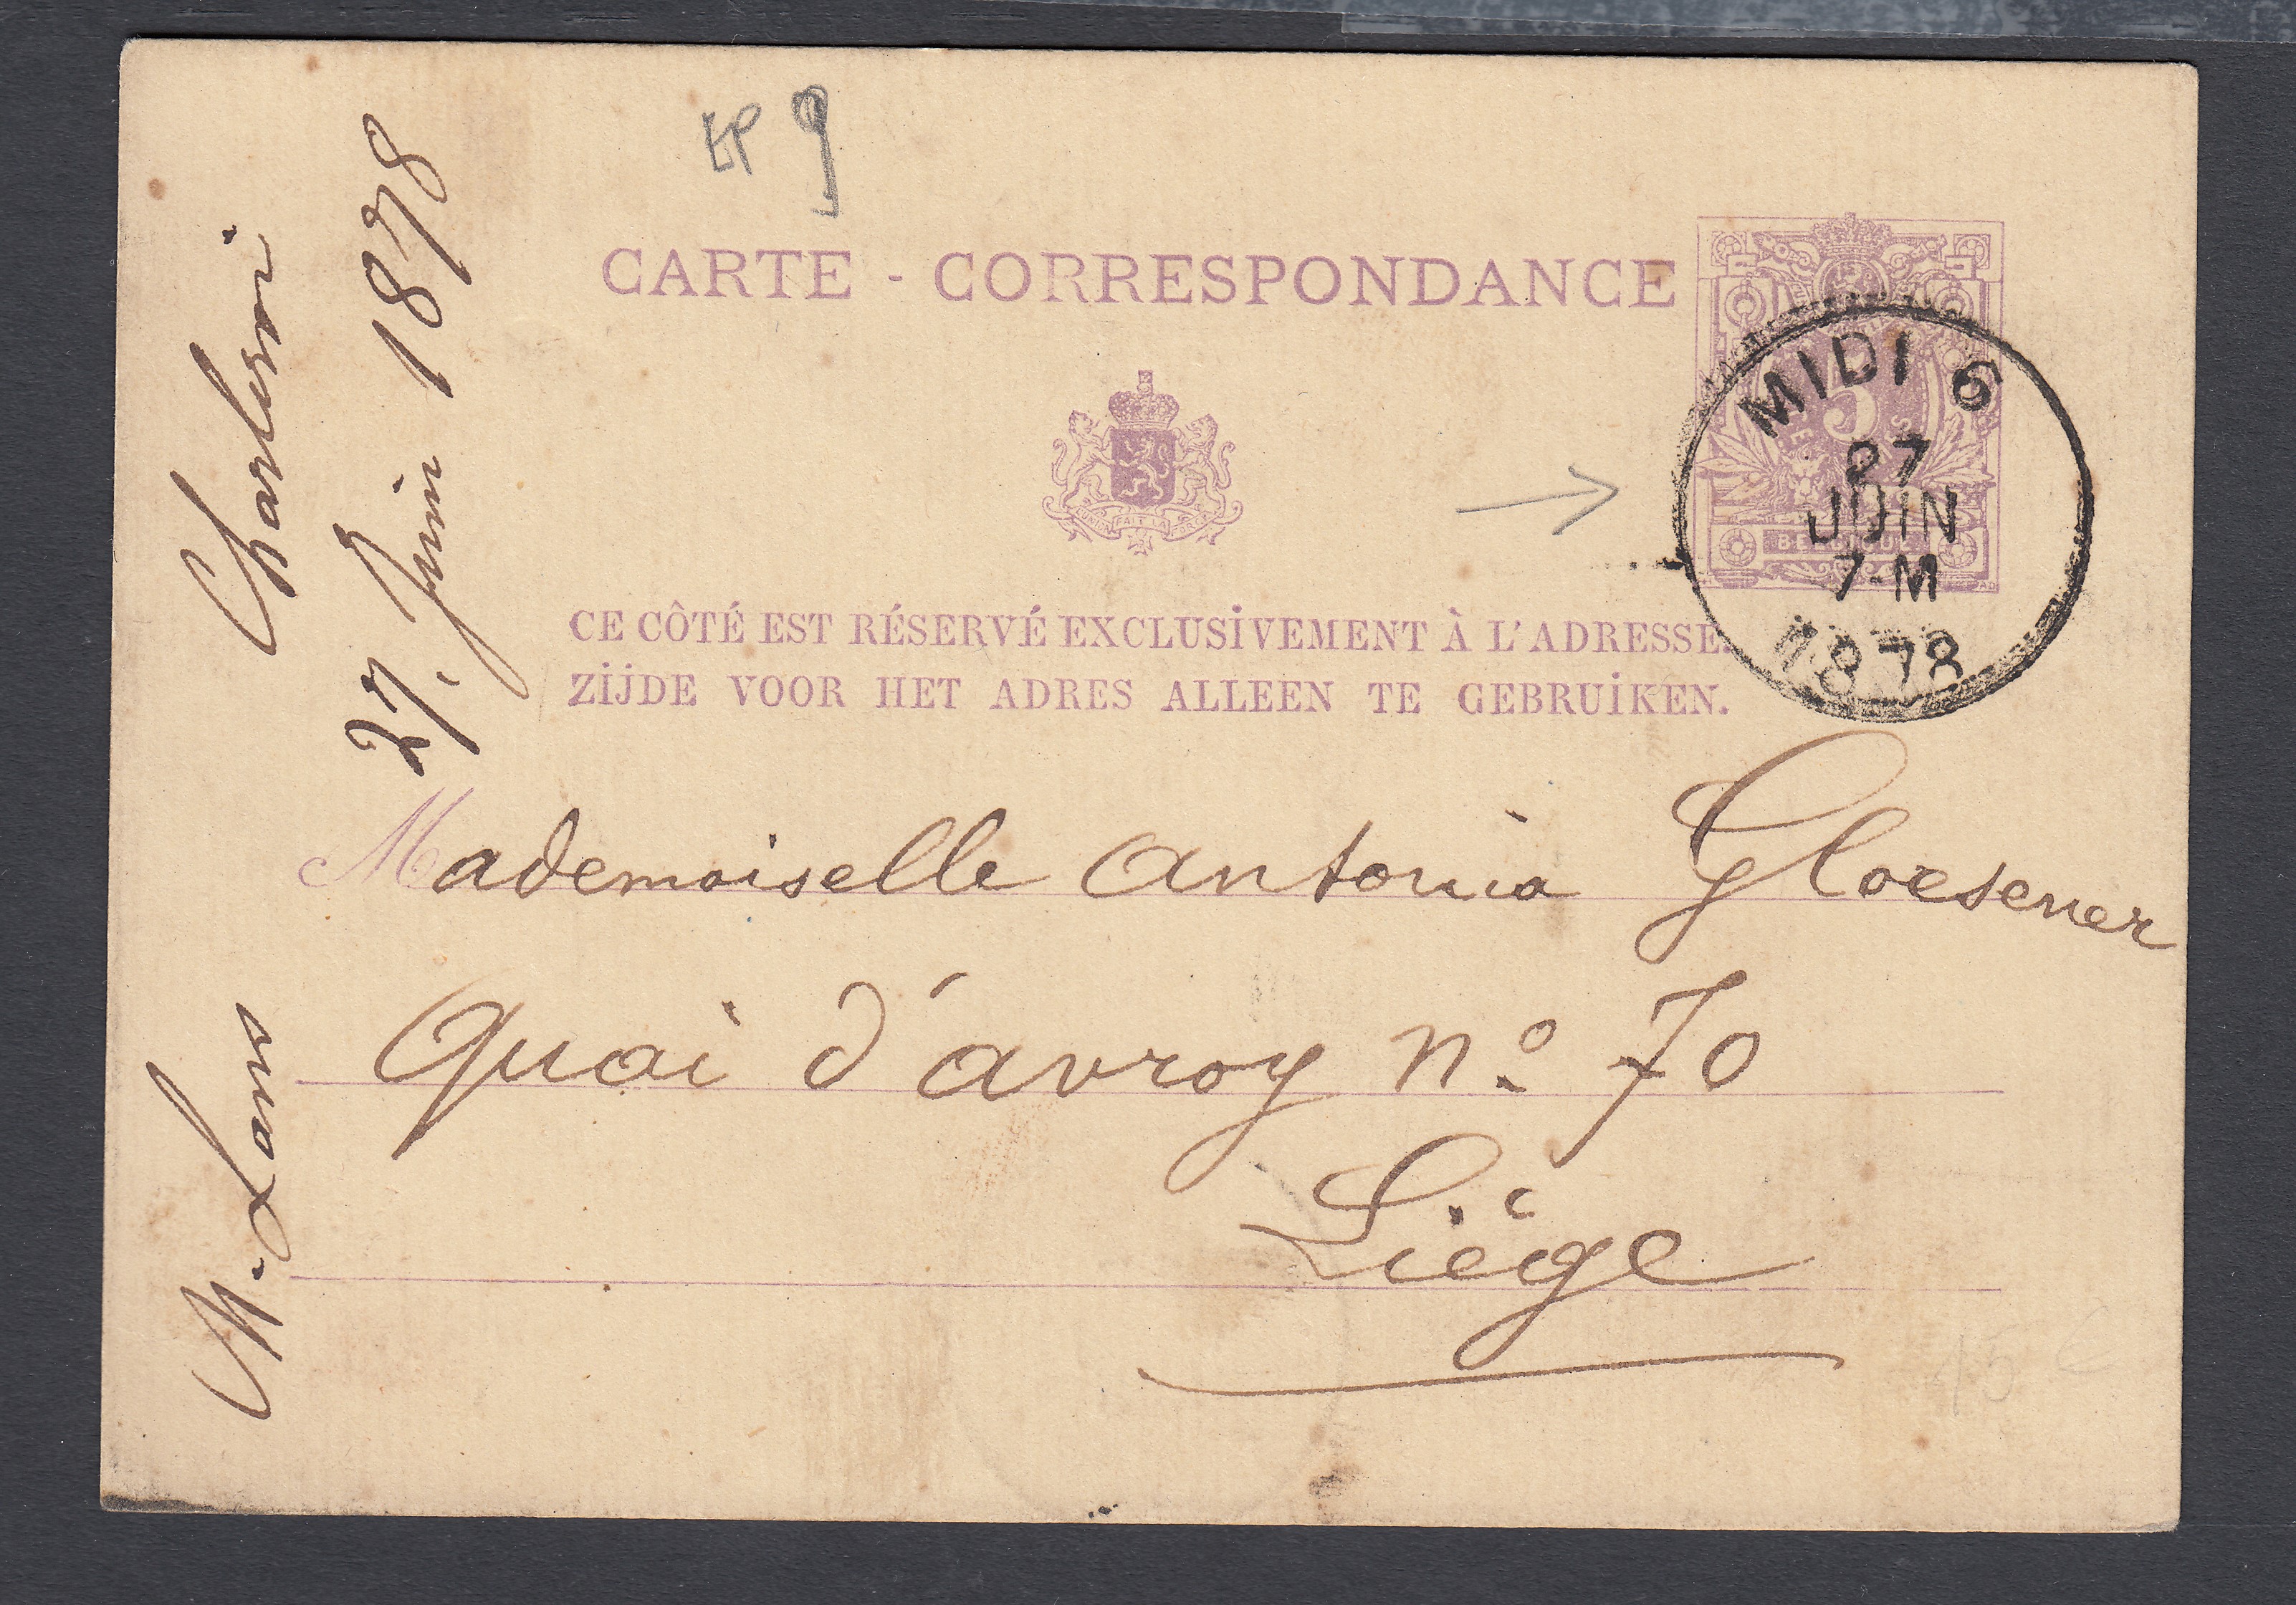 EP 9
CARTE - CORRESPONDANCE
5
BELGIQUE
MIDI 6
27
JUIN
7-M
1878
L'UNION FAIT LA FORCE
CE CÔTÉ EST RÉSERVÉ EXCLUSIVEMENT À L'ADRESSE.
ZIJDE VOOR HET ADRES ALLEEN TE GEBRUIKEN.
Mademoiselle Antonia Gloesener
Quai d'avroy n° 70
Liége
Charleroi
27. Juin 1878
M. Lans
15 €